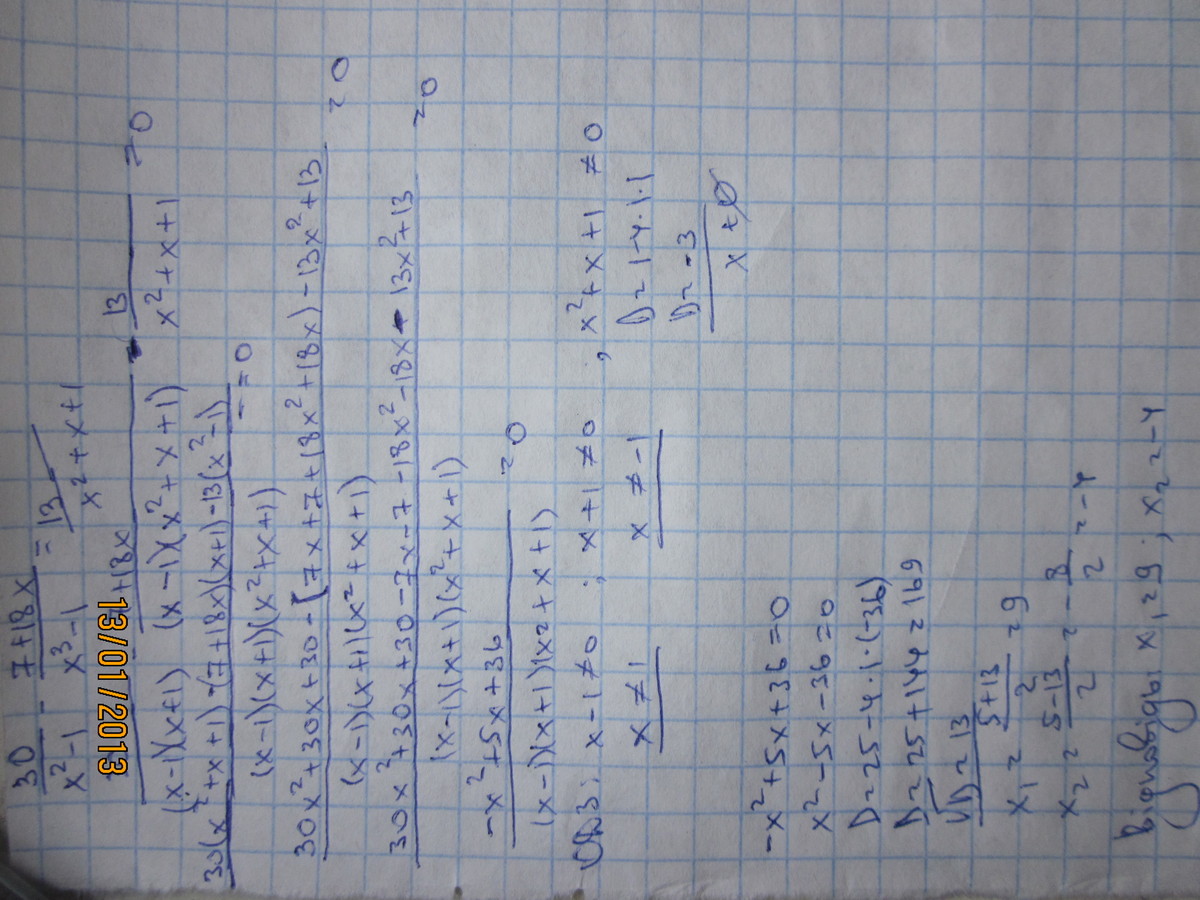 30/(x²-1) - (7+18x)/(x³-1) = 13/(x²+x+1)
30/((x-1)(x+1)) - (7+18x)/((x-1)(x²+x+1)) - 13/(x²+x+1) = 0
(30(x²+x+1)-(7+18x)(x+1)-13(x²-1))/((x-1)(x+1)(x²+x+1)) = 0
(30x²+30x+30-[7x+7+18x²+18x)-13x²+13)/((x-1)(x+1)(x²+x+1)) = 0
(30x²+30x+30-7x-7-18x²-18x-13x²+13)/((x-1)(x+1)(x²+x+1)) = 0
(-x²+5x+36)/((x-1)(x+1)(x2+x+1)) = 0
ОДЗ: x-1≠0 ; x+1≠0 , x²+x+1≠0
x≠1 x≠-1 D=1-4·1·1
D=-3
-x²+5x+36=0
x²-5x-36=0
D=25-4·1·(-36)
D=25+144=169
√D=13
x₁=(5+13)/2=9
x₂=(5-13)/2=-8/2=-4
Відповідь: x₁=9; x₂=-4
13/01/2013